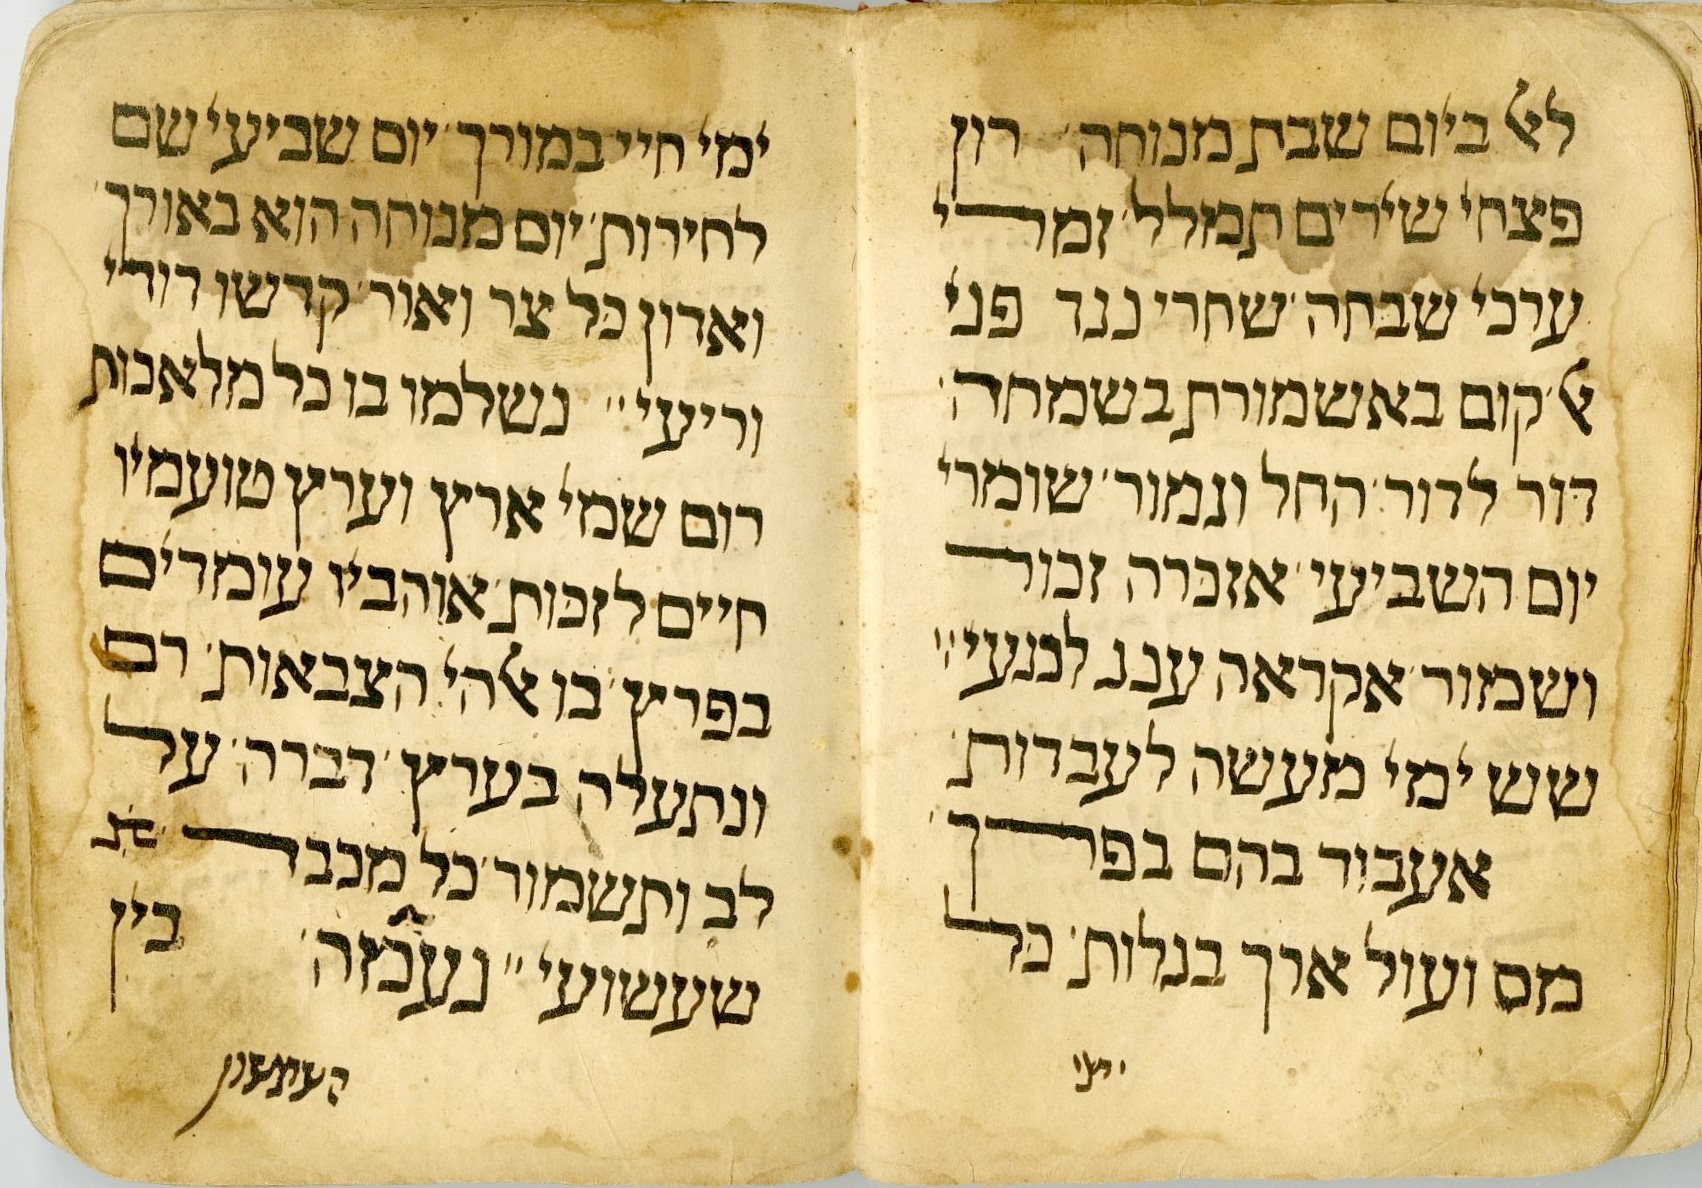 לאל ביום שבת מנוחה רון
פצחי שירים תמלל׳ זמרי
ערכי שבחה׳ שחרי נגד פני
אל׳ קום באשמורת בשמחה׳
דור לדור׳ החל וגמור׳ שומרי
יום השביעי׳ אזכרה זכור
ושמור׳ אקראה ענג לכנעי״
שש ימי מעשה לעבדות׳
אעבוד בהם בפרך׳
מס ועול ארך בגלות׳ כל
ימי חיי במורך׳ יום שביעי שם
לחירות׳ יום מנוחה הוא באורך׳
ואדון כל צר ואור׳ קדשו דודי
וריעי״ נשלמו בו כל מלאכות
רום שמי ארץ וערץ טועמיו
חיים לזכות׳ אוהביו עומדים
בפרץ׳ בו אלהי הצבאות׳ רם
ונתעלה בערץ׳ דברה׳ על
לב ותשמור׳ כל מכבד׳ את
שעשועי״ נעמה׳ בין